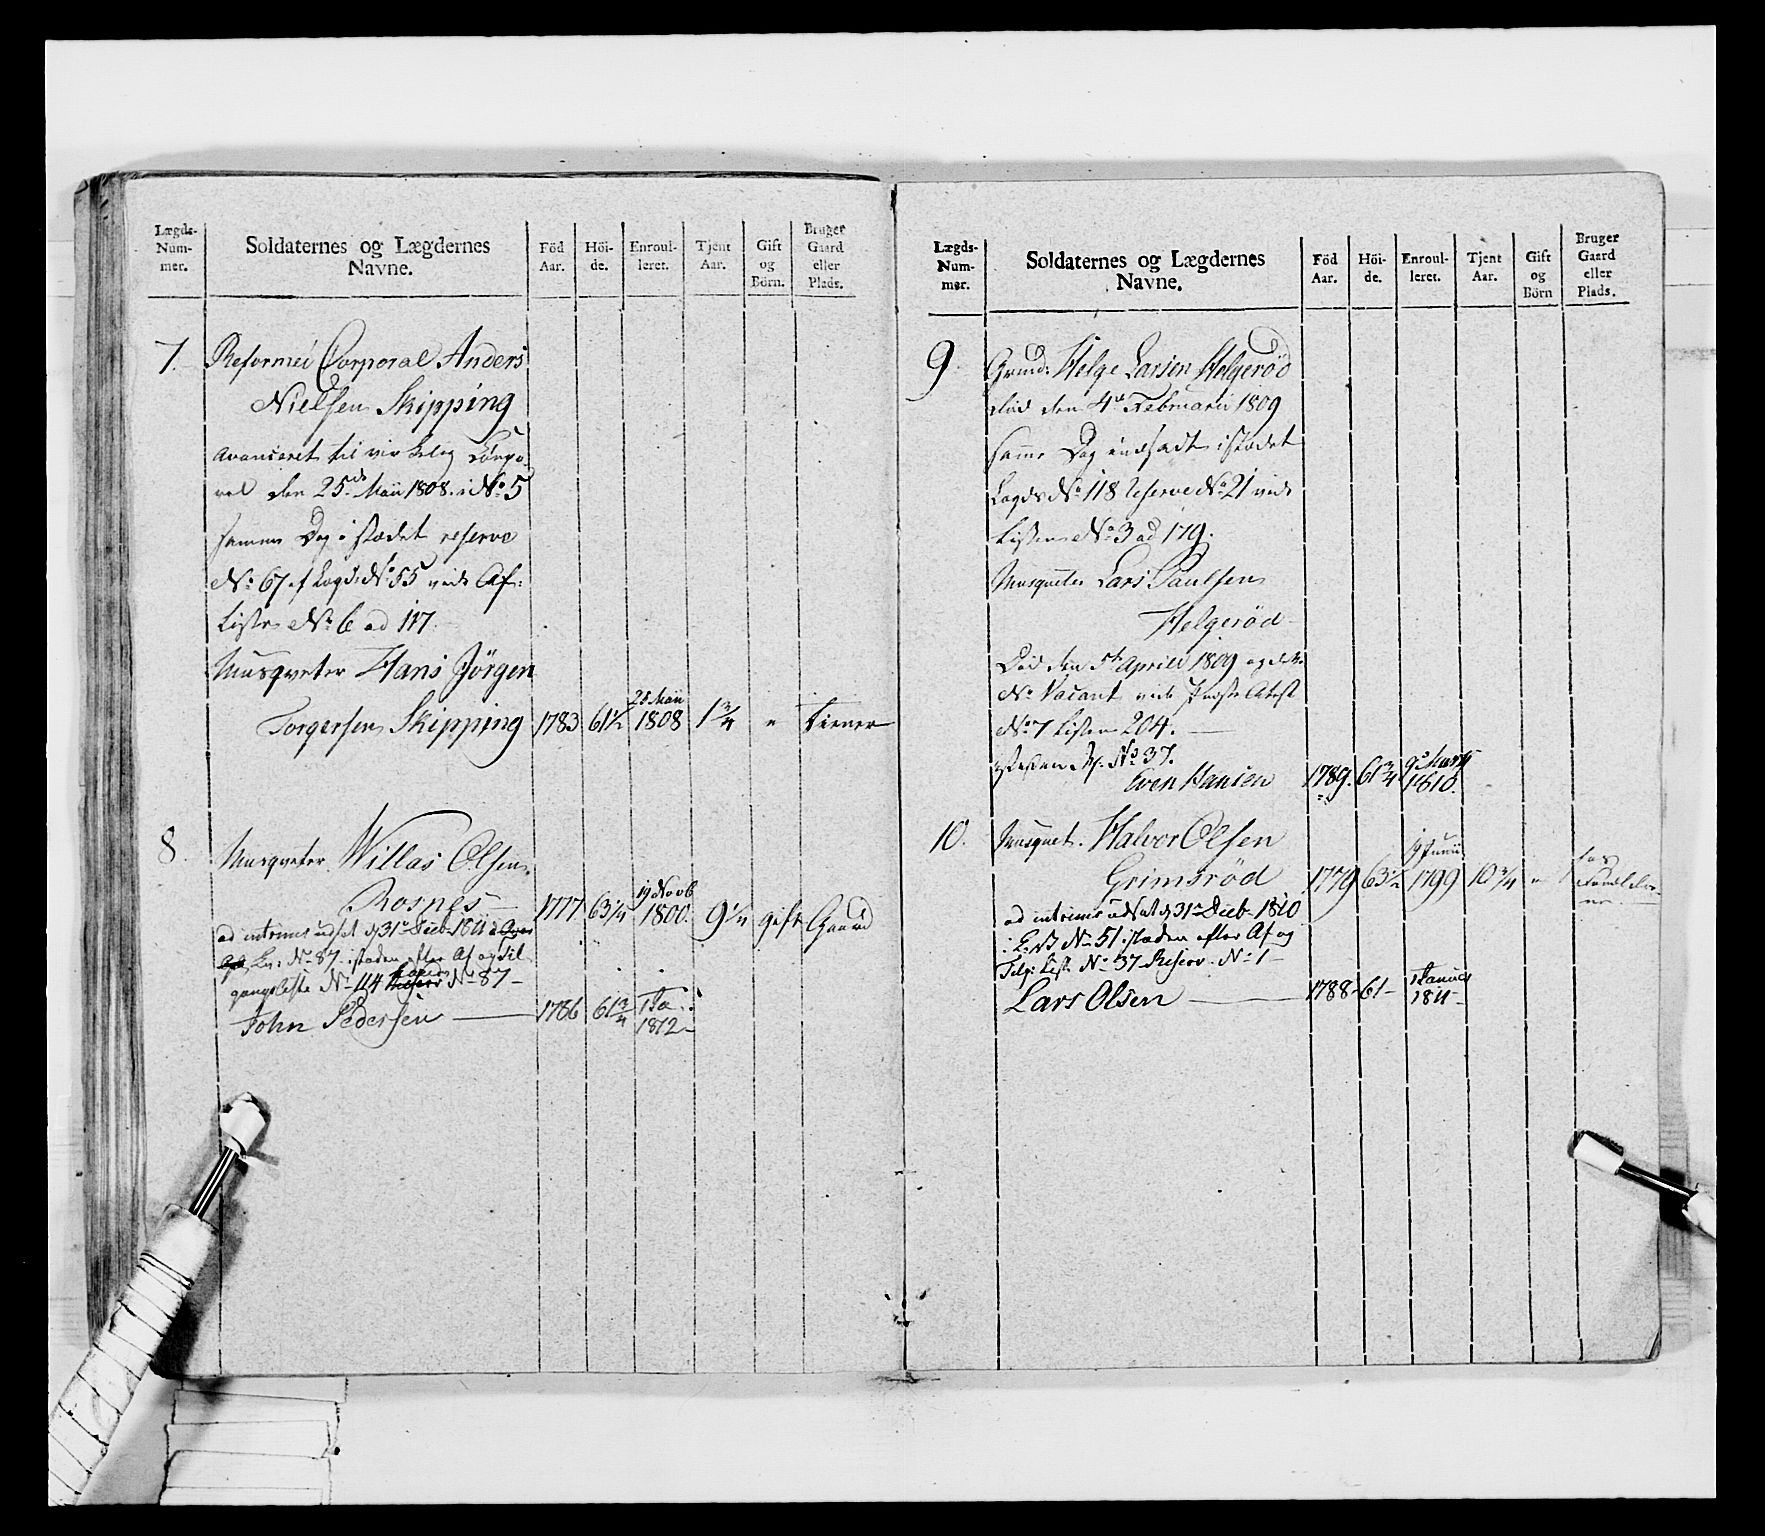 Lægds-
Num-
mer.
Soldaternes og Lægdernes
Navne.
Föd
Aar.
Höi-
de.
Enroul-
leret.
Tjent
Aar.
Gift
og
Börn.
Bruger
Gaard
eller
Plads.
7. Reformei Corporal Anders
Nielsen Skipping
avanceret til virkelig Corpo
ral den 25de Maii 1808. i No 5
samme Dag i stædet reserve
No 67 af Lægds No 55 vide Af:
Liste No 6 ad 117.
Musqveter Hans Jörgen
28 Maii
Torgersen Skipping 1783 61½ 1808 1¾ " tiener
8. Musqveter Willas Olsen
19 Novb
Rosnes 1777 63¼ 1800. 9¼ gift Gaard
ad interims udsat d 31te Decb 1811
No 87 istæden efter Af og Til
gangsliste No 114 No 87
John Pedersen 1786 61¾ 1 Ja
1812
Lægds-
Num-
mer.
Soldaternes og Lægdernes
Navne.
Föd
Aar.
Höi-
de.
Enroul-
leret.
Tjent
Aar.
Gift
og
Börn
Bruger
Gaard
eller
Plads.
9. Grind: Helge Larsen Helgeröd
död den 4de Februarii 1809
samme Dag indsadt i stædet
Lægds No 118 reserve No 21 vide
Listen No 3 ad 179.
Musqueter Lars Paulsen
Helgeröd
Död den 5te Aprili 1809 og dette
No Vacant vide Præste Atest
No 7 Listen 204.
istæden Rf. No 37.
Even Hansen 1789. 61¾ 9de Marty
1810.
10. Musquet. Halvor Olsen
19 Junii
Grimsröd 1779 63½ 1799 10¾ "
ad interims udsat d 31te Decb 1810
i L: No 51 istæden efter Af og
Tilg: List No 37 Reserv. No 1
Lars Olsen 1788 61 1 Januar
1811